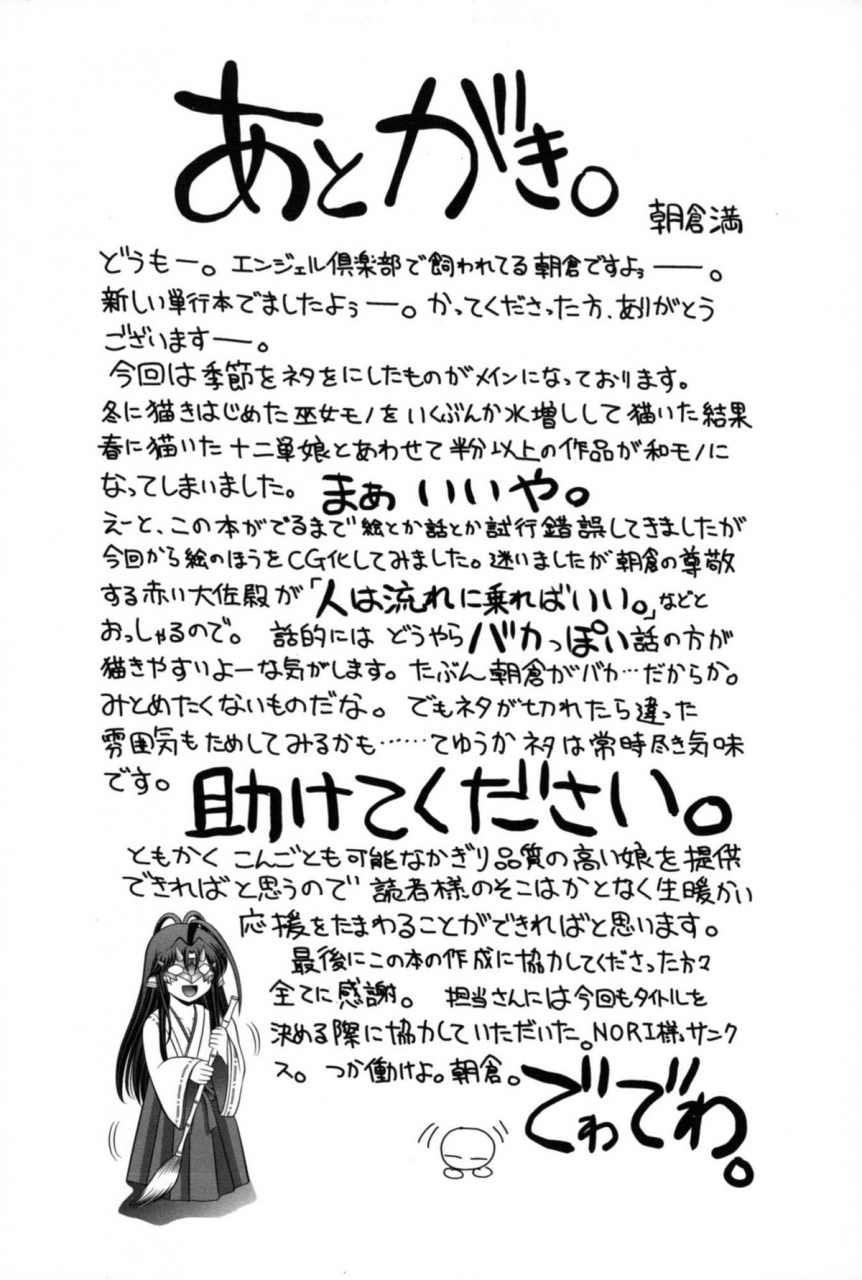 あとがき。
朝倉満
どうもー。エンジェル倶楽部で飼われてる朝倉ですよぅ──。
新しい単行本でましたよぅー。かってくださった方、ありがとう
ございます─。
今回は季節をネタをにしたものがメインになっております。
冬に描きはじめた巫女モノをいくぶんか水増しして描いた結果
春に描いた十二単娘とあわせて半分以上の作品が和モノに
なってしまいました。まぁいいや。
えーと、この本がでるまで絵とか話とか試行錯誤してきましたが
今回から絵のほうをCG化してみました。迷いましたが朝倉の尊敬
する赤い大佐殿が「人は流れに乗ればいい。」などと
おっしゃるので。話的にはどうやらバカっぽい話の方が
描きやすいよーな気がします。たぶん朝倉がバカ…だからか。
みとめたくないものだな。でもネタが切れたら違った
雰囲気もためしてみるかも……てゆうかネタは常時尽き気味
です。助けてください。
ともかくこんごとも可能なかぎり品質の高い娘を提供
できればと思うので読者様のそこはかとなく生暖かい
応援をたまわることができればと思います。
最後にこの本の作成に協力してくださった方々
全てに感謝。担当さんには今回もタイトルを
決める際に協力していただいた。NORI様、サンク
ス。つか働けよ。朝倉。でわでわ。